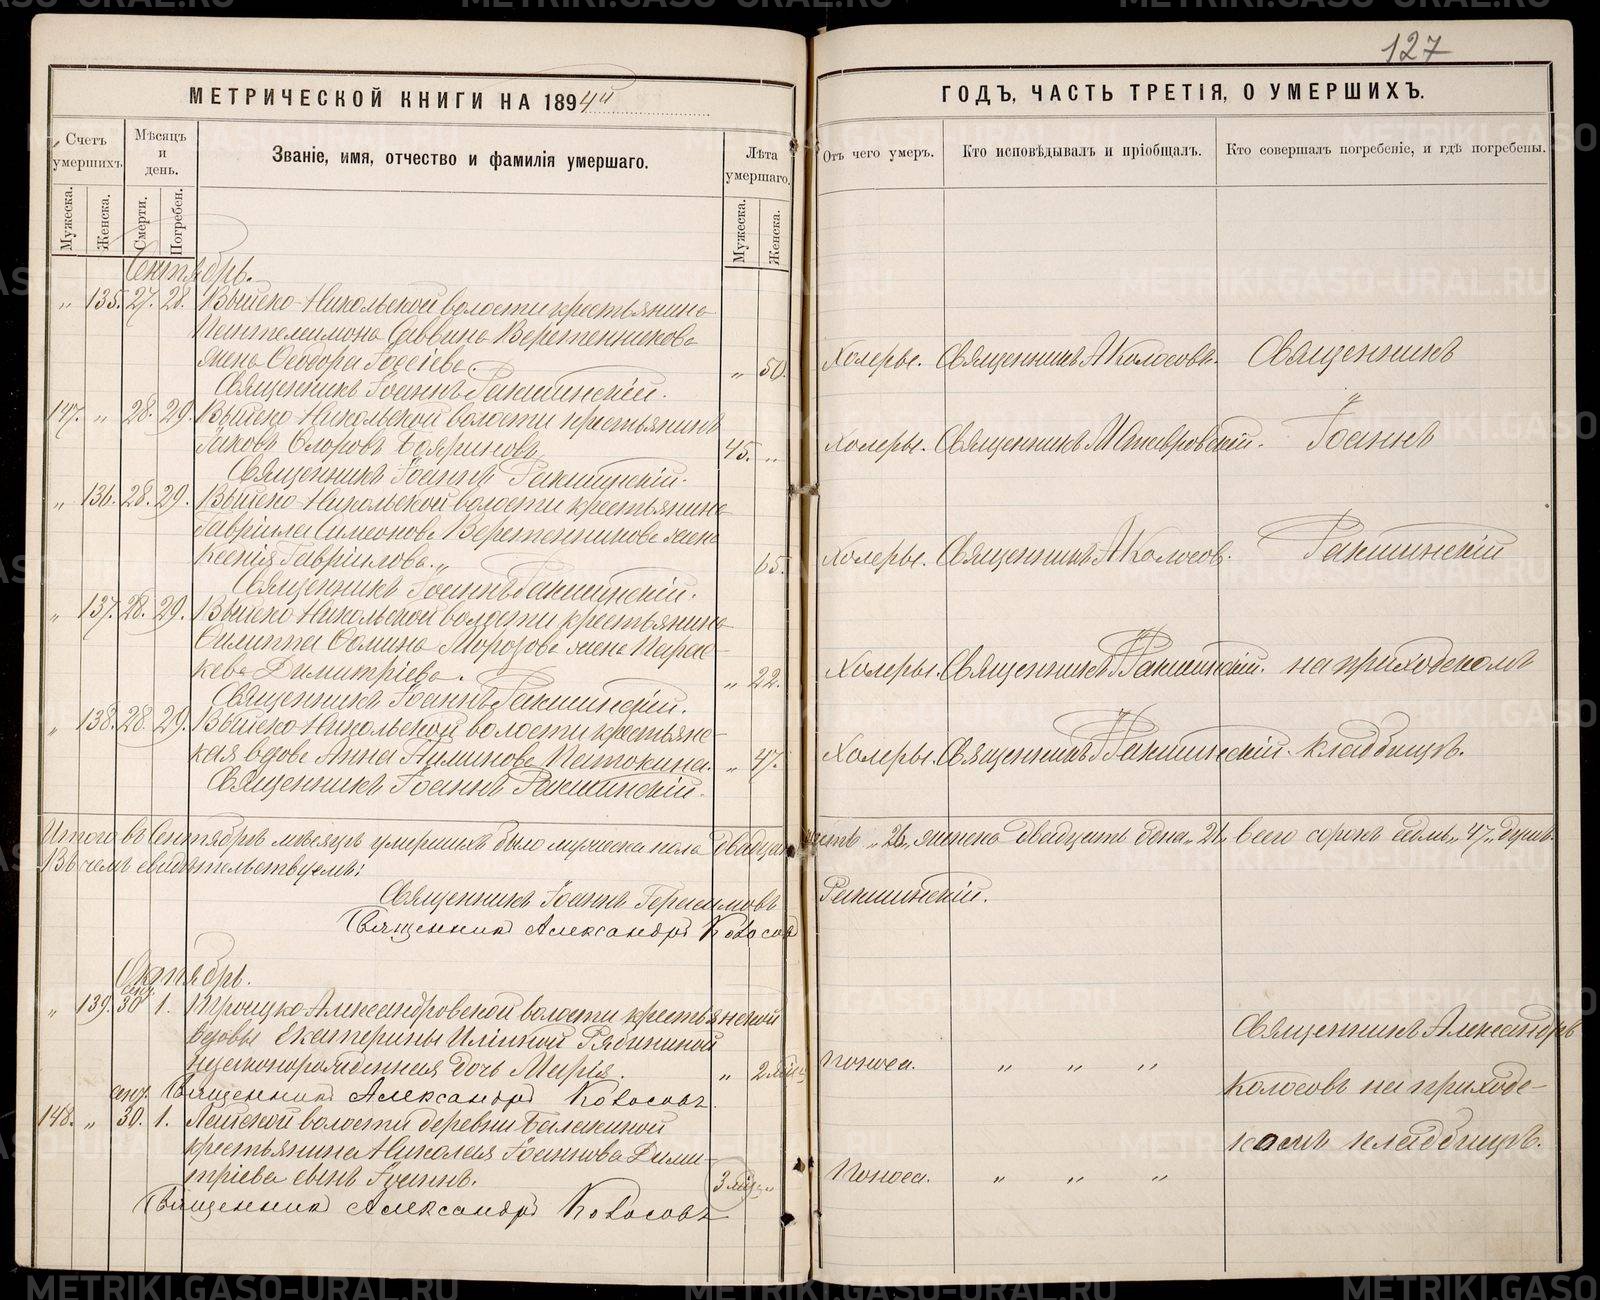 127
МЕТРИЧЕСКОЙ КНИГИ НА 1894й
ГОДЪ, ЧАСТЬ ТРЕТІЯ, О УМЕРШИХЪ.
Счетъ умершихъ.
Мѣсяцъ и день.
Званіе, имя, отчество и фамилія умершаго.
Лѣта умершаго.
Отъ чего умеръ.
Кто исповѣдывалъ и пріобщалъ.
Кто совершалъ погребеніе, и гдѣ погребены.
Мужеска. Женска. Смерти. Погребен.
Мужеска. Женска.
Сентябрь.
„ 135. 27. 28. Выйско-Никольской волости крестьянина
Пантелимона Саввина Веретенникова
жена Ѳеодора „ 50. Холеры. Священникъ А Колосовъ. Священникъ
Священникъ Іоаннъ Ракшинскій.
147. „ 28. 29. Выйско Никольской волости крестьянинъ
Іаковъ Бояриновъ 45. „ Холеры. Священникъ Іоаннъ
Священникъ Іоаннъ Ракшинскій.
„ 136. 28. 29. Выйско-Никольской волости крестьянина
Гавріила Симеонова Веретенникова жена
Ксенія Гаврилова. „ 65. Холеры. Священникъ А Колосов. Ракшинскій
Священникъ Іоаннъ Ракшинскій.
„ 137. 28. 29. Выйско Никольской волости крестьянина
Филиппа Фомина Морозова жена Парас-
кева Димитріева. „ 22. Холеры. Священникъ І Ракшинскій. на приходскомъ
Священникъ Іоаннъ Ракшинскій.
„ 138. 28. 29. Выйско-Никольской волости крестьянс-
кая вдова Анна Пятокина. „ 47. Холеры. Священникъ І Ракшинскій кладбищѣ.
Священникъ Іоаннъ Ракшинскій.
Итого въ Сентябрѣ мѣсяцѣ умершихъ было мужеска пола двадцать шесть „26„ женска двадцать одна „21„ всего сорокъ семь „47„ душъ.
Въ чемъ свидѣтельствуемъ:
Священникъ Іоаннъ Герасимовъ Ракшинскій.
Священникъ Александръ Колосовъ
Октябрь.
сент.
„ 139. 30 1. Троицко-Александровской волости крестьянской
вдовы Екатерины Иліиной Рябининой
незаконорожденная дочь Марія. „ 2 мѣс. Поноса. „ „ „
Священникъ Александръ Колосовъ.
Священникъ Александръ
Колосовъ на приход-
скомъ кладбищѣ.
сент.
148. „ 30. 1. Лайской волости деревни Балакиной
крестьянина Николая Іоаннова Дими-
тріева сынъ Іоаннъ. 3 мѣс. „ Поноса. „ „ „
Священникъ Александръ Колосовъ
METRIKI.GASO-URAL.RU